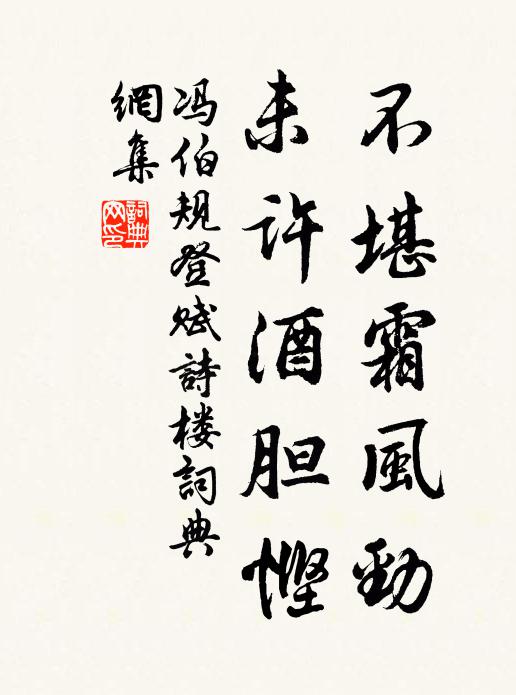 不堪霜風勁
未许酒胆慳
冯伯规登赋詩楼詞典
網集
詞典
网印